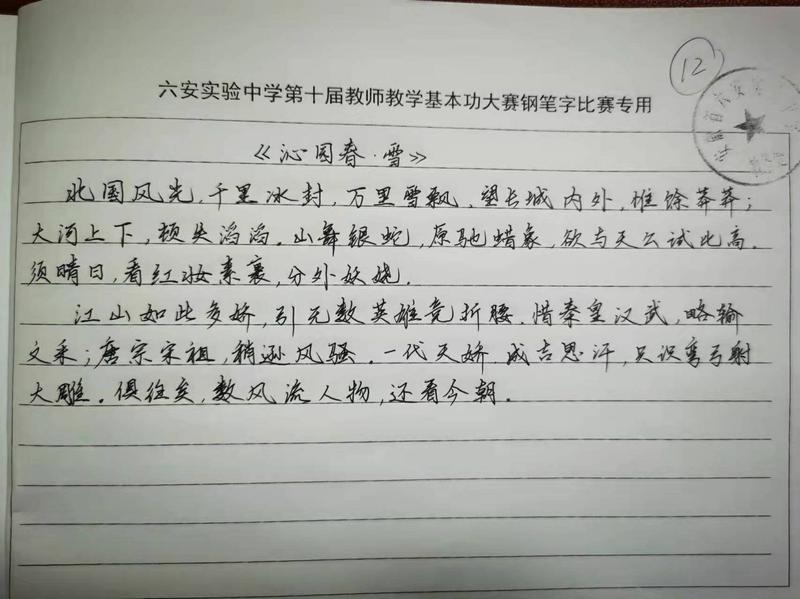 12
六安实验中学第十届教师教学基本功大赛钢笔字比赛专用
《沁园春·雪》
北国风光,千里冰封,万里雪飘.望长城内外,惟馀莽莽;
大河上下,顿失滔滔.山舞银蛇,原驰蜡象,欲与天公试比高.
须晴日,看红妆素裹,分外妖娆.
江山如此多娇,引无数英雄竞折腰.惜秦皇汉武,略输
文采;唐宗宋祖,稍逊风骚.一代天娇,成吉思汗,只识弯弓射
大雕.俱往矣,数风流人物,还看今朝.